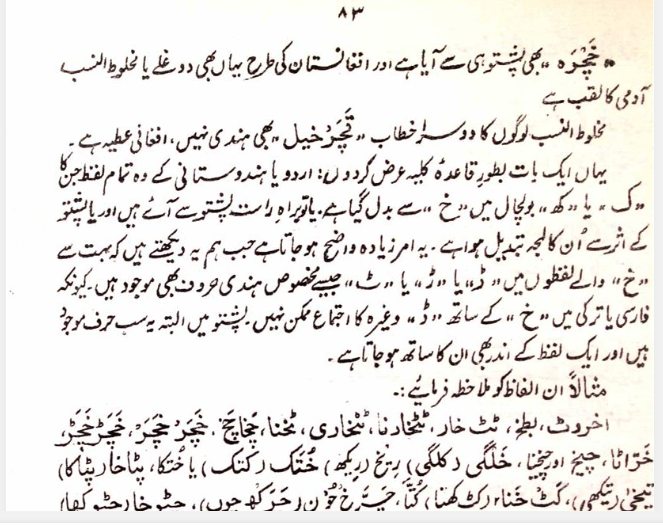 ۸۳
"خَچَّرَہ" بھی پشتو ہی سے آیا ہے اور افغانستان کی طرح یہاں بھی دوغلے یا مخلوط النسب
آدمی کا لقب ہے
مخلوط النسب لوگوں کا دوسرا خطاب "تَچَرْ خیل" بھی ہندی نہیں، افغانی عطیہ ہے۔
یہاں ایک بات بطورِ قاعدۂ کلیہ عرض کردوں: اردو یا ہندوستانی کے وہ تمام لفظ جن کا
"ک" یا "کھ" بولچال میں "خ" سے بدل گیا ہے۔ یا تو براہِ راست پشتو سے آئے ہیں اور یا پشتو
کے اثر سے اُن کا لہجہ تبدیل ہوا ہے۔ یہ امر زیادہ واضح ہو جاتا ہے جب ہم یہ دیکھتے ہیں کہ بہت سے
"خ" والے لفظوں میں "ڈ" یا "ڑ" یا "ٹ" جیسے مخصوص ہندی حروف بھی موجود ہیں۔ کیونکہ
فارسی یا ترکی میں "خ" کے ساتھ "ڈ" وغیرہ کا اجتماع ممکن نہیں۔ پشتو میں البتہ یہ سب حرف موجود
ہیں اور ایک لفظ کے اندر بھی ان کا ساتھ ہو جاتا ہے۔
مثالاً ان الفاظ کو ملاحظہ فرمائیے:۔
اخروٹ، بطخ، ٹٹ خار، ٹٹخارنا، ٹٹخاری، ٹخنا، چَخاچَخ، خَچَرْ خَچَرْ، خَچَڑ خَچَڑ
خَرّاٹا، چیخ اور چیخنا، خَلگی (کلگی) رِیخ (ریکھ) خُتَک (کتک) یا خُتکا، پٹاخا (پٹاکا)
تیخی (تیکھی)، کَٹ خَنا (کٹ کھنا) کُتّا،